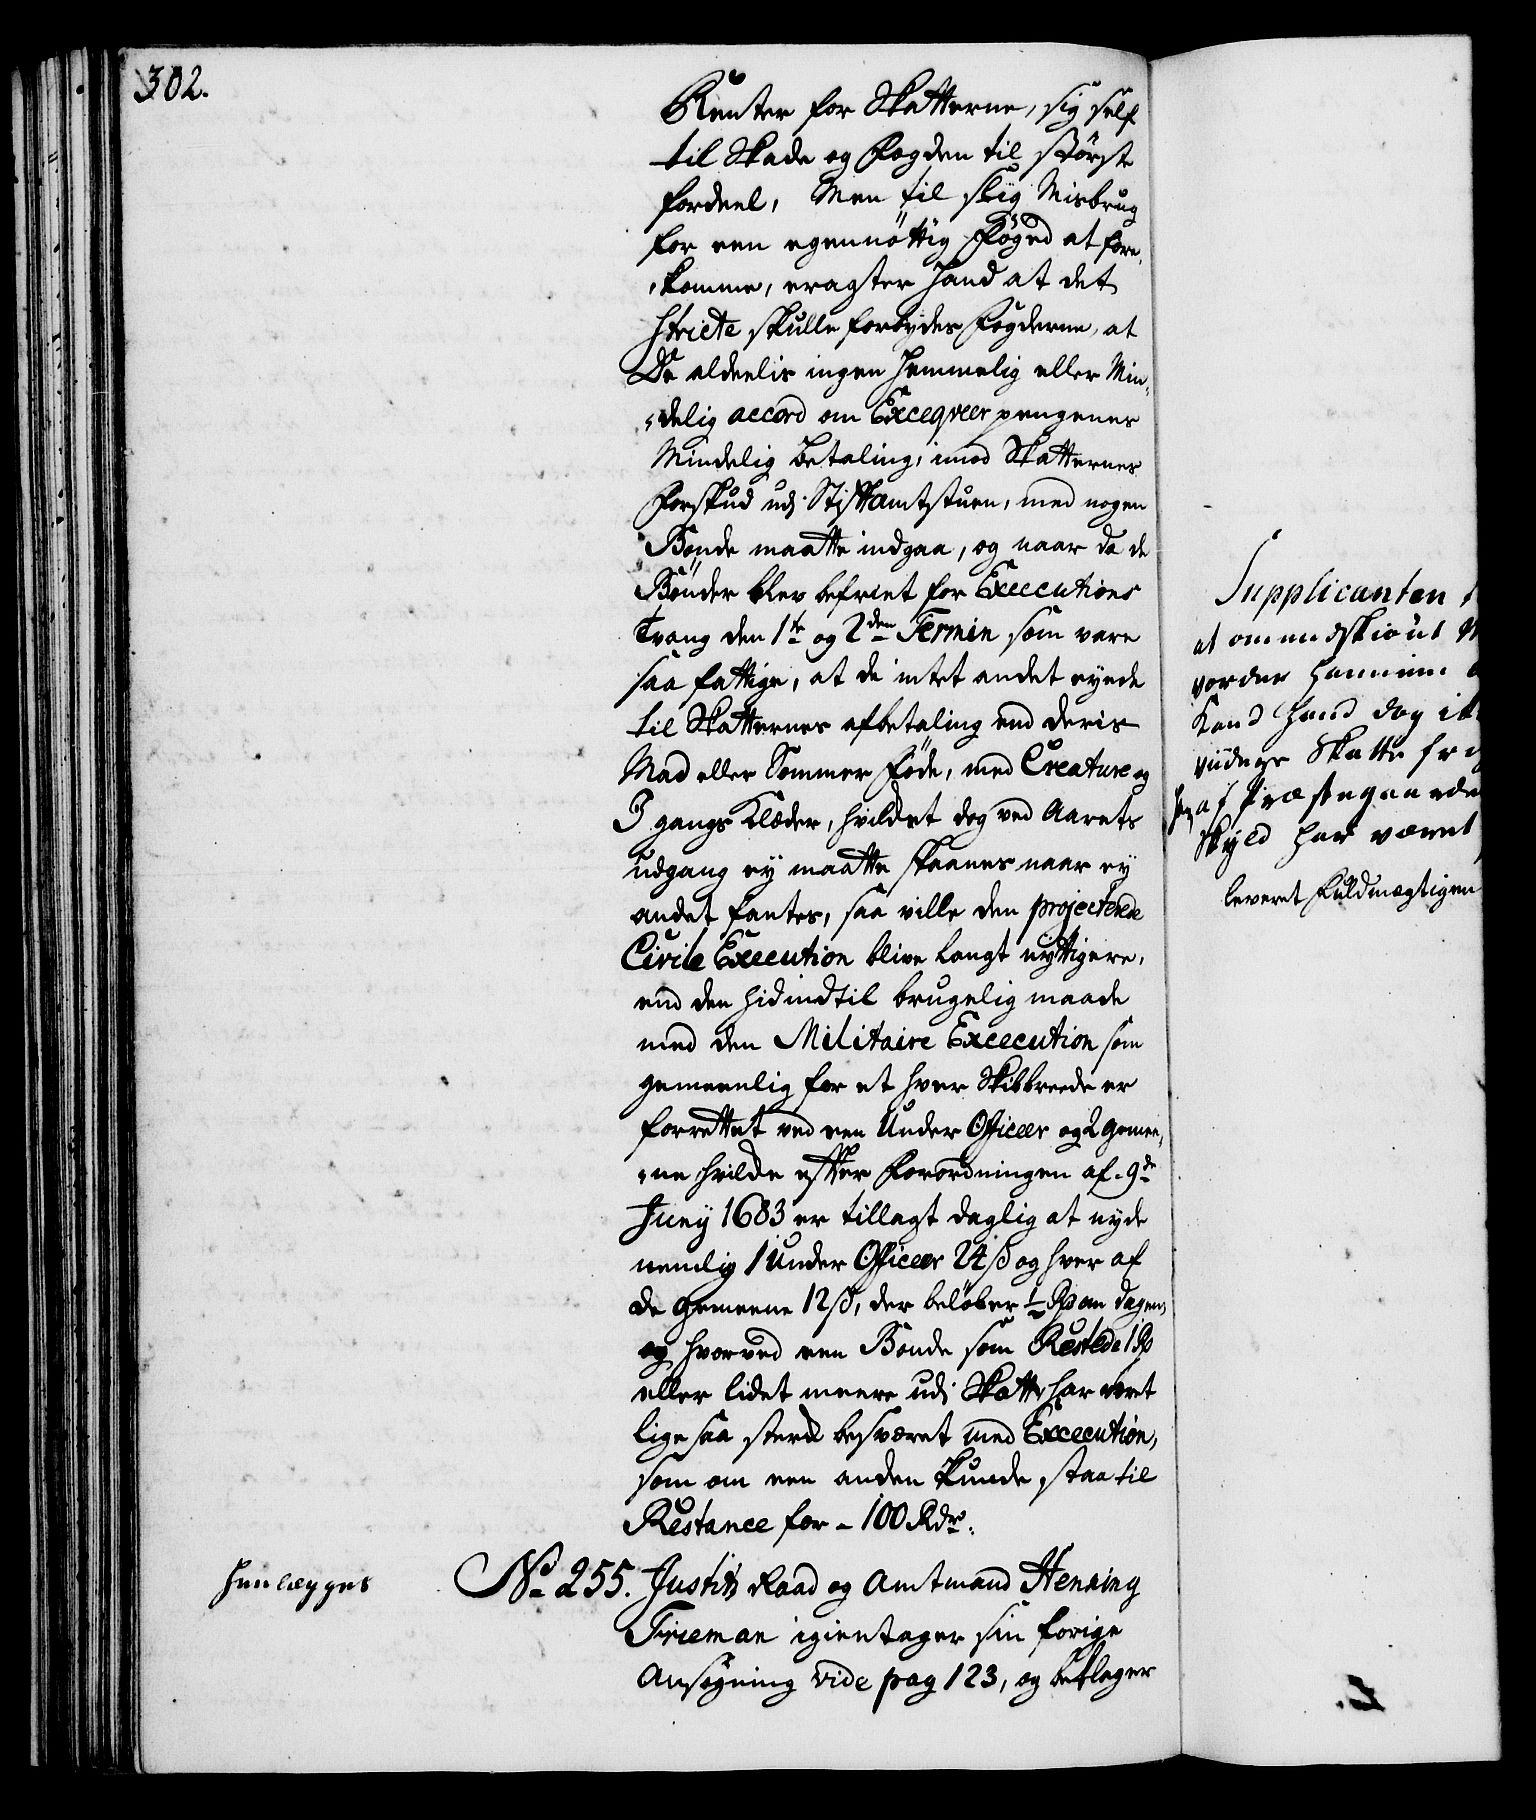 302.
Renter for Skatterne, sig self
til Skade og Fogden til störste
fordeel, Men til slig Misbrug
for een egennöttig Foged at fore,
,komme, eragter hand at det
stricte skulle forbydes Fogderne, at
De aldeelis ingen hemmelig eller Min-
-delig accord om Exceqveer pengenes
Mindelig betaling, imod Skatternes
Forskud udj Stiftamtstuen, med nogen
Bonde maatte indgaa, og naar da de
Bönder blev befriet for Executions
Tvang den 1te og 2den Termin som vare
saa fattige, at de intet andet eyede
til Skatternes afbetaling end deris
Mad eller Sommer föde, med Creature og
I gangs Klæder, hvildet dog ved Aarets
udgang ey maatte skaanes naar ey
andet fantes, saa ville den projecterede
Civile Execution blive langt nyttigere,
end den hidindtil brugelig maade
med den Militaire Excecution som
gemeenlig for et hver Skibbreede er
forrettet ved een Under Officeer og 2 gemee,
,ne hvilde efter Forordningen af 9de
Junij 1683 er tillagt daglig at nyde
nemlig 1 Under Officeer 24 ß og hver af
de gemeene 12 ß, der belöber ½ Rd om dagen,
og hvorved een Bonde som Restede 1 Rd
eller lidet meere udj Skatt, har været
lige saa sterk besværet med Excecution,
som om een anden kunde staa til
Restance for - 100 Rdr.
henlægges
No 255. Justitz Raad og Amtmand Henning
Frieman igientager sin forige
Ansögning vide pag 123, og beklager
Supplicanten
at omendskiönt
vorder hannem
Kand hand dog ik
viidere Skatte fri
af Præstegaarde
Skyld har været
leveret Fuldmægtigen